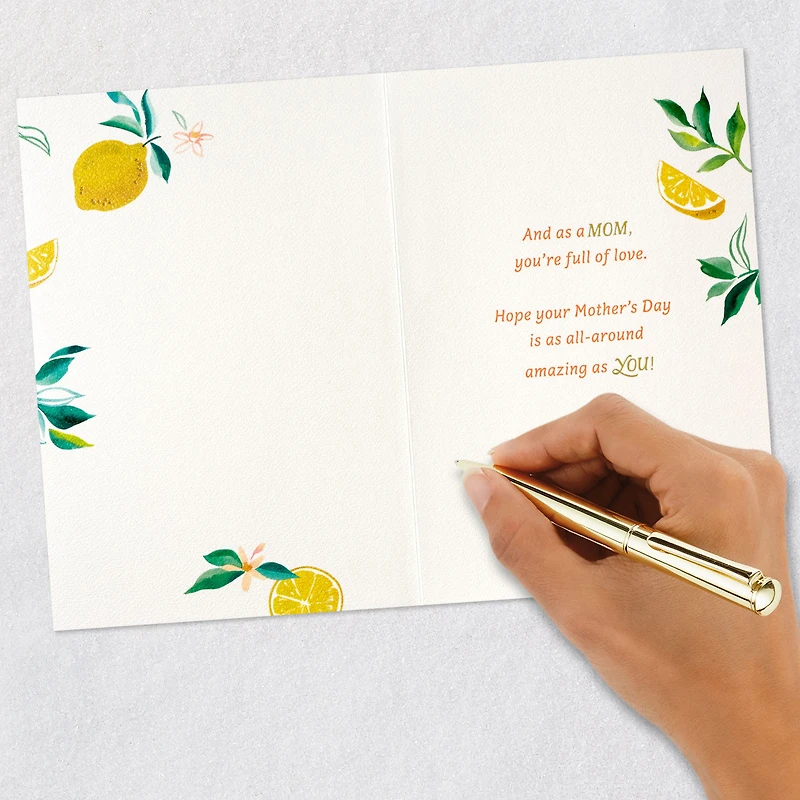 And as a MOM,
you're full of love.
Hope your Mother's Day
is as all-around
amazing as YOU!